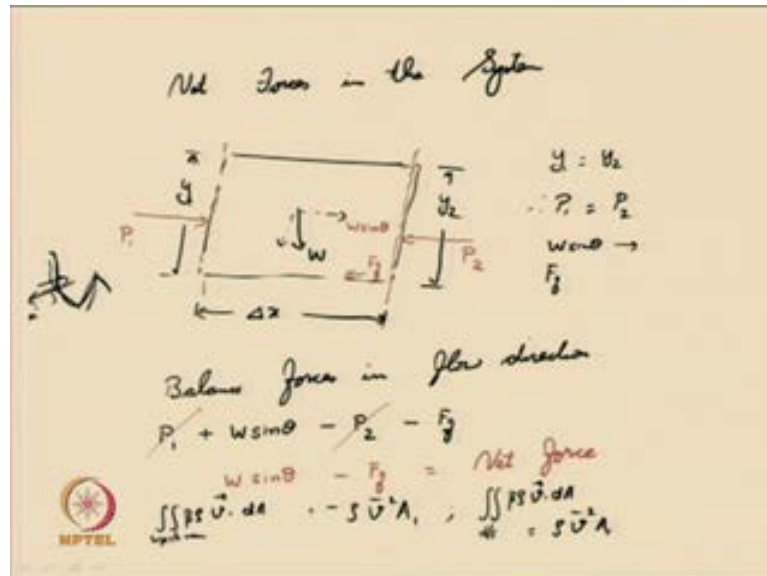 Net Forces in the System
y
P₁
W sinθ
W
F_f
Δx
y₂
P₂
y₁ = y₂
∴ P₁ = P₂
W sinθ →
F_f
Balance forces in flow direction
P₁ + W sinθ − P₂ − F_f
W sinθ − F_f = Net force
∬ βρ v⃗. dA = − ρ v̄² A₁ , ∬ βρ v⃗. dA
= ρ v̄² A
NPTEL